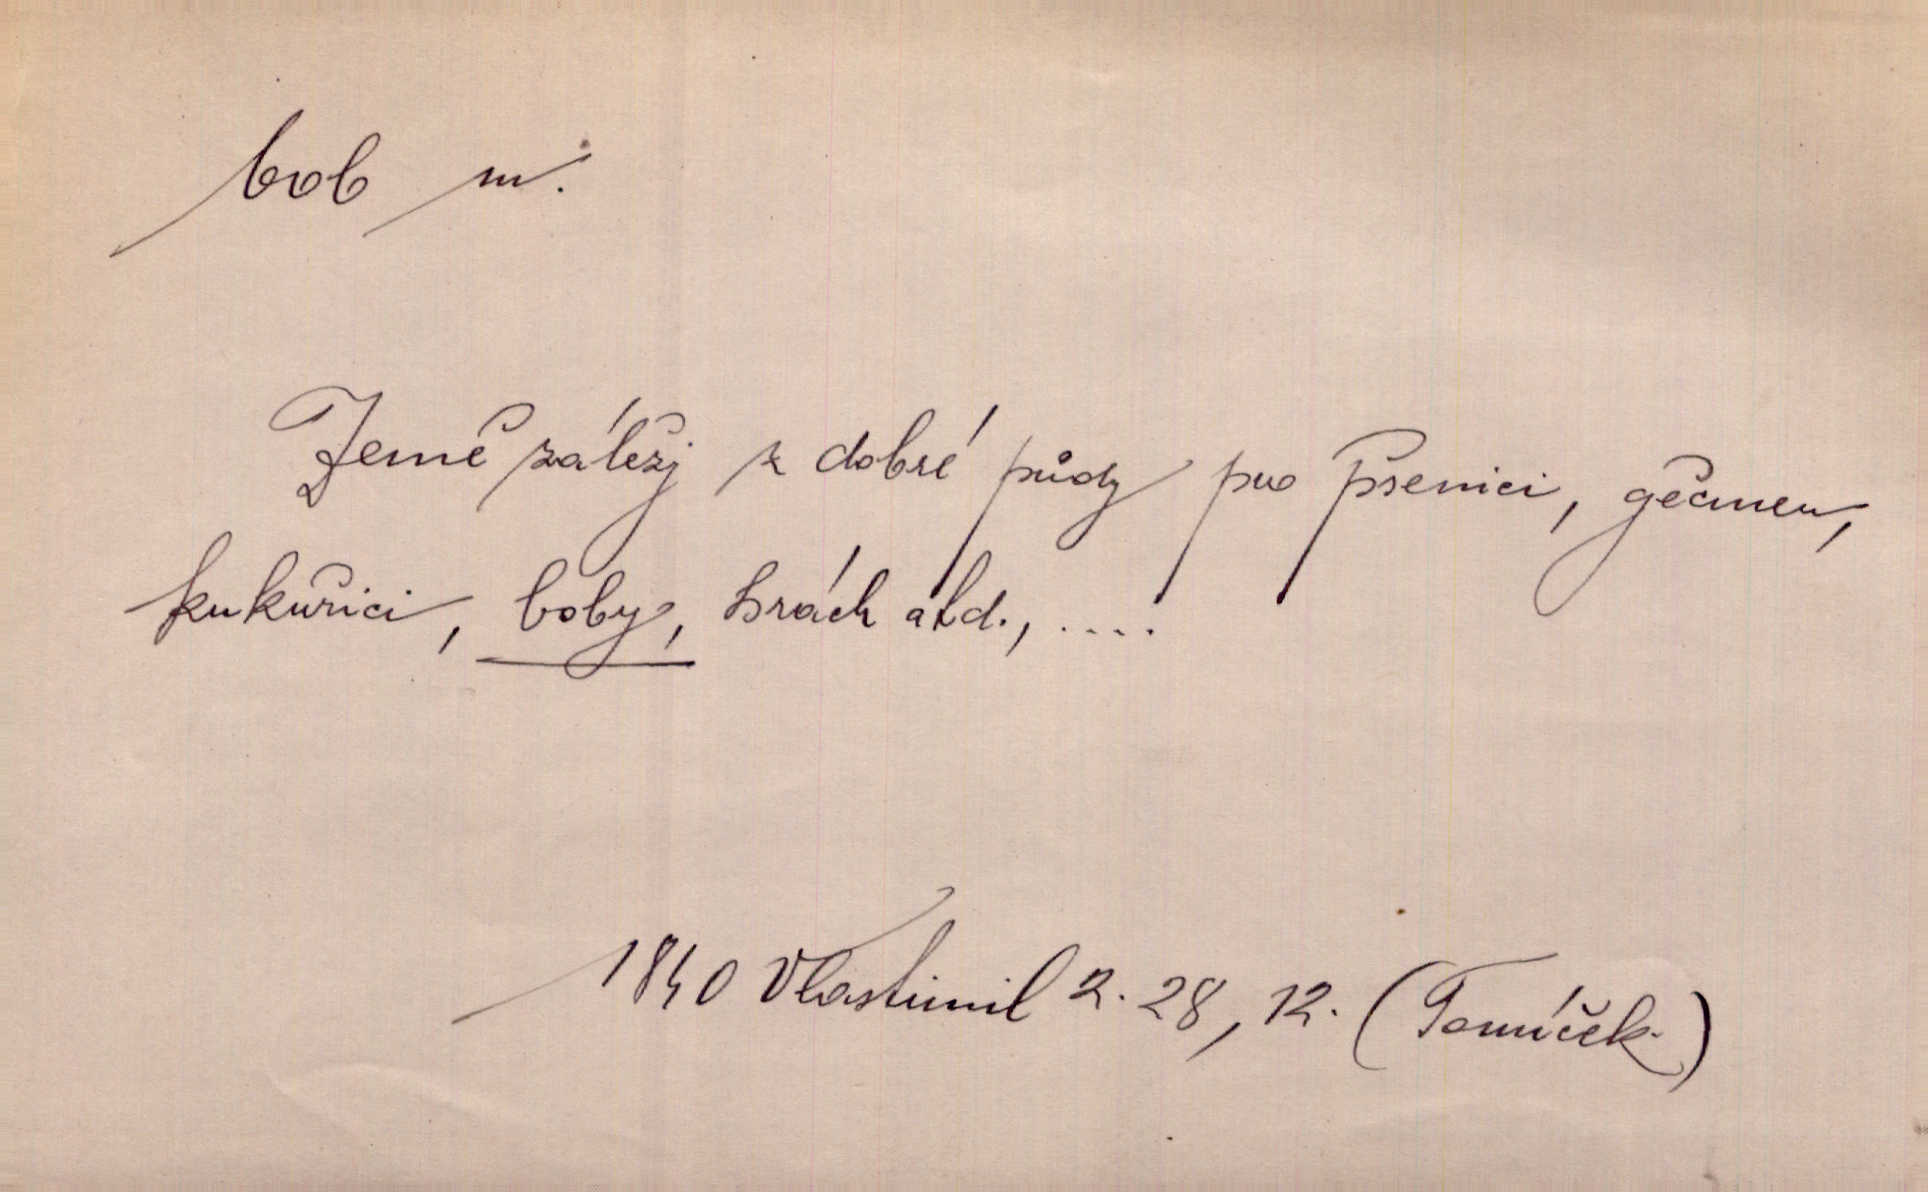 bob m.
Země záležj z dobré půdy pro pšenici, gečmen,
kukuřici, boby, hrách atd., ....
1840 Vlastimil 2. 28, 12. (Tomíček)